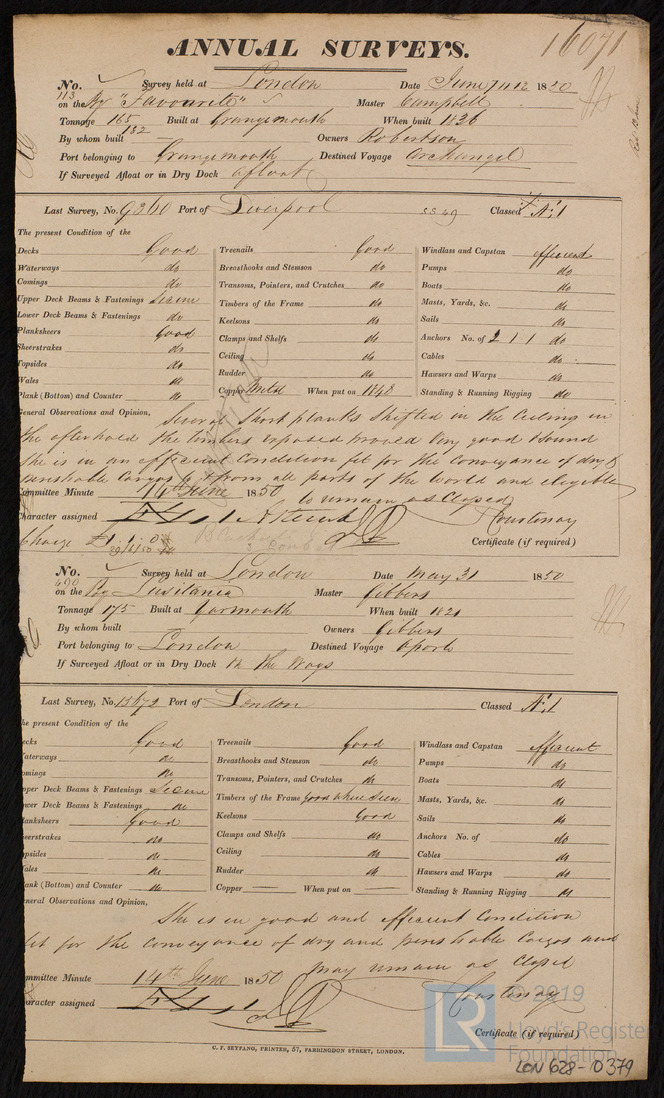 16071
ANNUAL SURVEYS.
No. 113 Survey held at London Date June 1850
on the Bg "Favourite" Master Campbell
Tonnage 165 132 Built at Grangemouth When built 1836
By whom built — Owners Robertson
Port belonging to Grangemouth Destined Voyage Archangel
If Surveyed Afloat or in Dry Dock afloat
Last Survey, No. 9360 Port of Liverpool Classed Æ 1
The present Condition of the
Decks Good Treenails Good Windlass and Capstan efficient
Waterways do Breasthooks and Stemson do Pumps do
Comings do Transoms, Pointers, and Crutches do Boats do
Upper Deck Beams & Fastenings Secure Timbers of the Frame do Masts, Yards, &c. do
Lower Deck Beams & Fastenings do Keelsons do Sails do
Planksheers Good Clamps and Shelfs do Anchors No. of 2 1 1 do
Sheerstrakes do Ceiling do Cables do
Topsides do Rudder do Hawsers and Warps do
Wales do Copper Metal When put on 1848 Standing & Running Rigging do
Plank (Bottom) and Counter do
General Observations and Opinion, Several Short planks Shifted in the Ceiling in
the afterhold the timbers exposed proved very good & Sound
She is in an efficient Condition fit for the Conveyance of dry &
perishable Cargos to & from all parts of the World and eligible
to remain as Classed
Committee Minute 14th June 1850
Character assigned Æ 1 Courtenay
Charge £1. 1. 0 Certificate (if required)
No. 490 Survey held at London Date May 31 1850
on the Bg Lusitania Master Gibbens
Tonnage 175 Built at Yarmouth When built 1821
By whom built Owners Gibbens
Port belonging to London Destined Voyage Oporto
If Surveyed Afloat or in Dry Dock On the Ways
Last Survey, No. 15672 Port of London Classed Æ 1
he present Condition of the
ecks Good Treenails Good Windlass and Capstan efficient
aterways do Breasthooks and Stemson do Pumps do
omings do Transoms, Pointers, and Crutches do Boats do
pper Deck Beams & Fastenings Secure Timbers of the Frame Good where Seen Masts, Yards, &c. do
wer Deck Beams & Fastenings do Keelsons Good Sails do
lanksheers Good Clamps and Shelfs do Anchors No. of do
eerstrakes do Ceiling do Cables do
psides do Rudder do Hawsers and Warps do
ales do Copper — When put on — Standing & Running Rigging do
ank (Bottom) and Counter do
eneral Observations and Opinion,
She is in good and efficient Condition
fit for the Conveyance of dry and perishable Cargos and
may remain as Classed
mmittee Minute 14th June 1850
aracter assigned Æ 1 Courtenay
Certificate (if required)
C. F. SEYFANG, PRINTER, 57, FARRINGDON STREET, LONDON.
© 2019
LR Lloyd's Register
Foundation
LON 628-0379